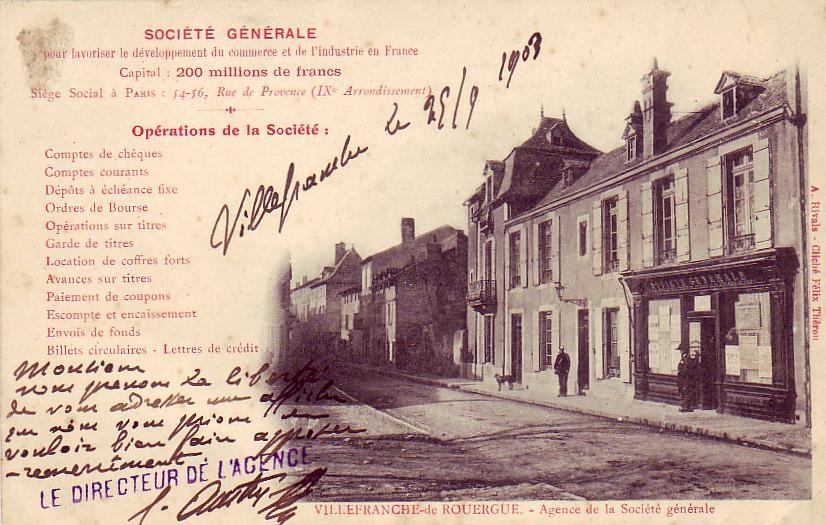 SOCIÉTÉ GÉNÉRALE
pour favoriser le développement du commerce et de l'industrie en France
Capital : 200 millions de francs
Siège Social à PARIS : 54-56, Rue de Provence (IXe Arrondissement)
Opérations de la Société :
Comptes de chèques
Comptes courants
Dépôts à échéance fixe
Ordres de Bourse
Opérations sur titres
Garde de titres
Location de coffres forts
Avances sur titres
Paiement de coupons
Escompte et encaissement
Envois de fonds
Billets circulaires - Lettres de crédit
Villefranche le 25/9 1903
SOCIÉTÉ GÉNÉRALE
A. Rivals - Cliché Félix Théron
Monsieur
nous prenons la liberté
de vous adresser une affiche
que nous vous prions de
vouloir bien faire apposer
LE DIRECTEUR DE L'AGENCE
VILLEFRANCHE-de ROUERGUE. - Agence de la Société générale